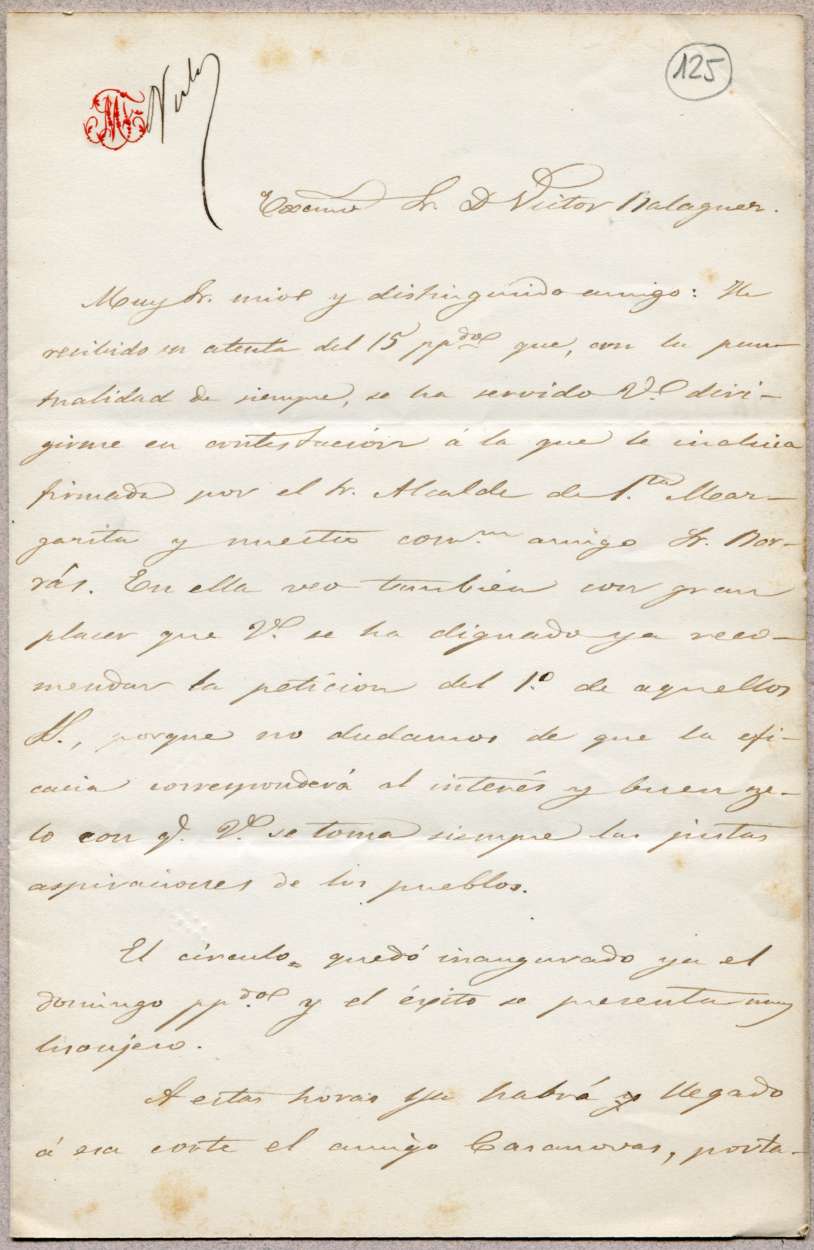 125
Excmo Sr. D Victor Balaguer.
Muy Sr. mio y distinguido amigo: He
recibido su atenta del 15 ppdo que, con la pun
tualidad de siempre, se ha servido V. diri-
girme en contestación á la que le
firmada por el Sr. Alcalde de Sta. Mar-
garita y nuestro comun amigo Sr. Bor-
rás. En ella veo tambien con gran
placer que V. se ha dignado ya reco-
mendar la peticion del 1.º de aquellos
S., porque no dudamos de que la efi-
cacia corresponderá al interés y buen ze-
lo con q. V. se toma siempre las justas
aspiraciones de los pueblos.
El círculo quedó inaugurado ya el
domingo ppdo y el éxito se presenta muy
lisonjero.
A estas horas ya habrá llegado
á esa corte el amigo Casanovas, porta-